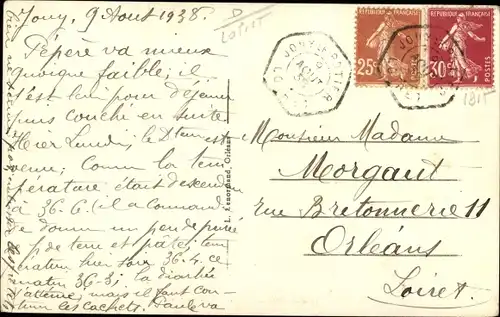 Jouy, 9 Août 1938.
Pépère va mieux
quoique faible; il
s'est levé pour déjeuner
puis couché en suite
Hier Lundi, le Dr est
venue; Comme la tem
pérature était descendue
à 36.6 (il a commandé
de donner un peu de purée
p. de terre et pâtes; tem
pérature hier soir 36.4. ce
matin 36-3; la diarrhée
s'atténue, mais il faut con
tinuer les cachets. Paule va
L. Lenormand, Orléans
JOUY-LE-POTIER
AOUT
25c
POSTES
30c
POSTES
1815
Monsieur Madame
Morgaut
rue Bretonnerie 11
Orléans
Loiret.